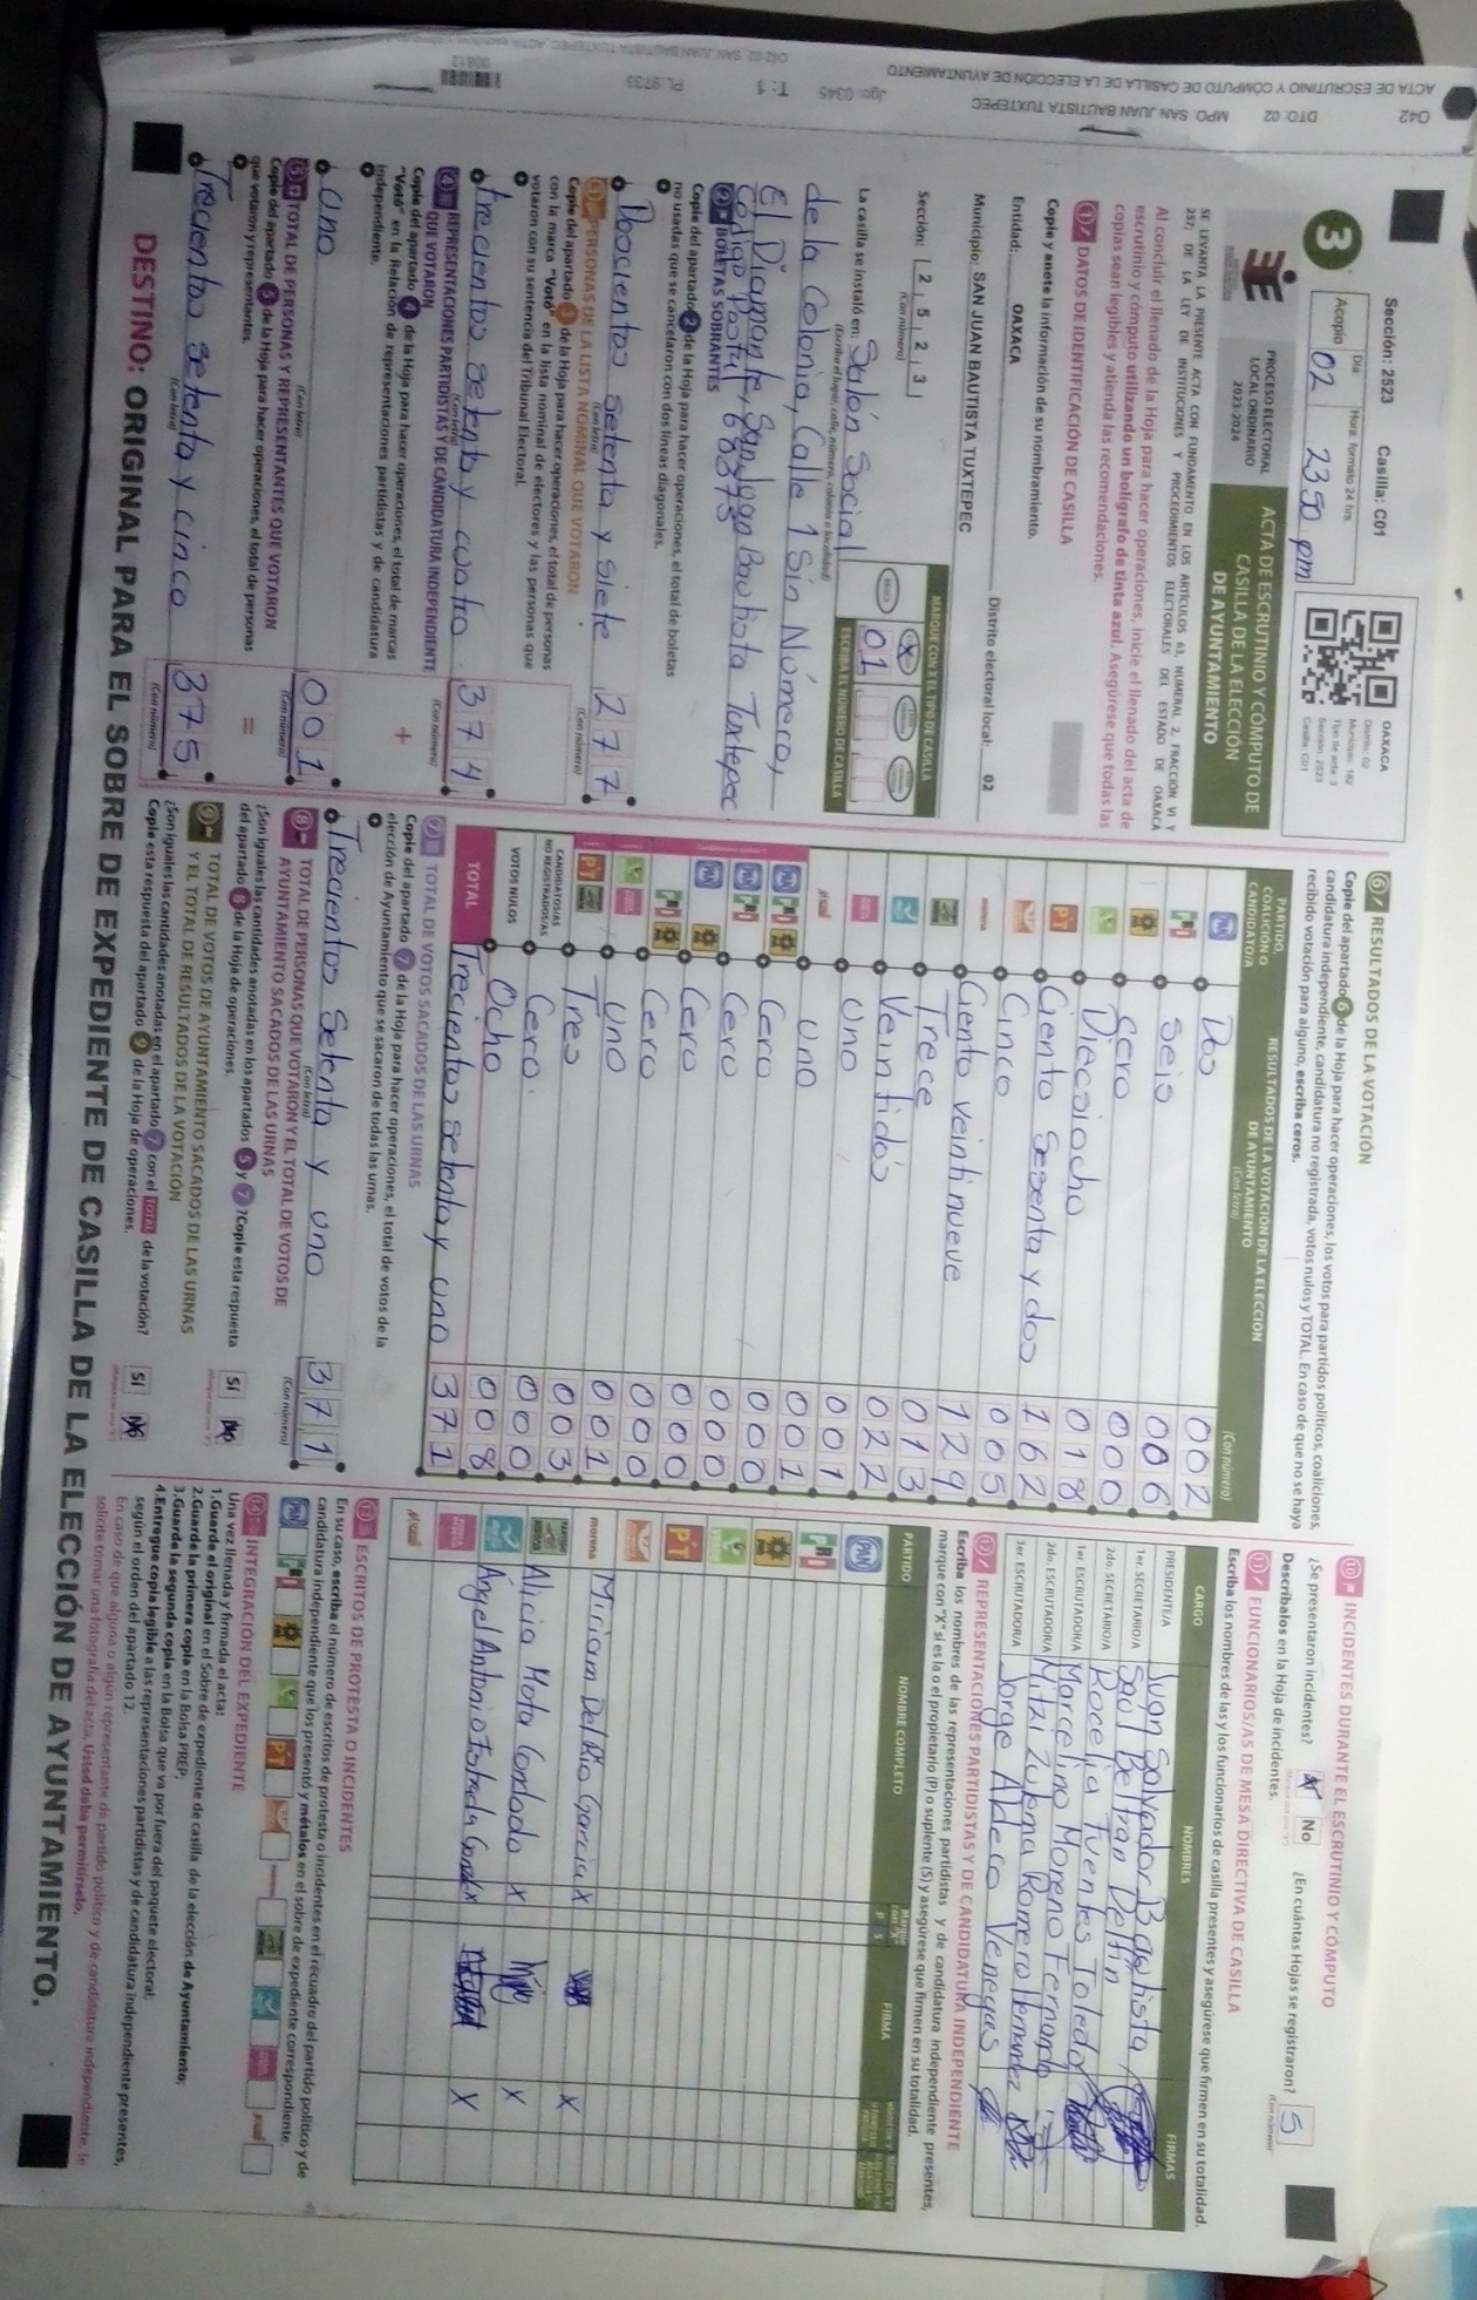 Sección: 2523 Casilla: C01
Día
Hora: formato 24 hrs
Acopio 02 2350 pm
3
OAXACA
Distrito: 02
Municipio: 182
Tipo de acta: 3
Sección: 2523
Casilla: C01
PROCESO ELECTORAL
LOCAL ORDINARIO
2023-2024
ACTA DE ESCRUTINIO Y CÓMPUTO DE
CASILLA DE LA ELECCIÓN
DE AYUNTAMIENTO
SE LEVANTA LA PRESENTE ACTA CON FUNDAMENTO EN LOS ARTÍCULOS 63, NUMERAL 2, FRACCIÓN VI Y
257; DE LA LEY DE INSTITUCIONES Y PROCEDIMIENTOS ELECTORALES DEL ESTADO DE OAXACA
Al concluir el llenado de la Hoja para hacer operaciones, inicie el llenado del acta de
escrutinio y cómputo utilizando un bolígrafo de tinta azul. Asegúrese que todas las
copias sean legibles y atienda las recomendaciones.
1 DATOS DE IDENTIFICACIÓN DE CASILLA
Copie y anete la información de su nombramiento.
Entidad: OAXACA Distrito electoral local: 02
Municipio: SAN JUAN BAUTISTA TUXTEPEC
Sección: 2 5 2 3
(Con número)
MARQUE CON X EL TIPO DE CASILLA
X
01
ESCRIBA EL NÚMERO DE CASILLA
La casilla se instaló en: Salón Social
(Escriba el lugar, calle, número, colonia o localidad)
de la Colonia, Calle 1 Sin Número,
El Diamante, San Juan Bautista Tuxtepec
Código Postal, 68373
2 BOLETAS SOBRANTES
Copie del apartado 2 de la Hoja para hacer operaciones, el total de boletas
no usadas que se cancelaron con dos líneas diagonales.
Doscientos setenta y siete 277
(Con letra) (Con número)
3 PERSONAS DE LA LISTA NOMINAL QUE VOTARON
Copie del apartado 3 de la Hoja para hacer operaciones, el total de personas
con la marca "Votó" en la lista nominal de electores y las personas que
votaron con su sentencia del Tribunal Electoral.
trecientos setenta y cuatro 374
(Con letra) (Con número)
4 REPRESENTACIONES PARTIDISTAS Y DE CANDIDATURA INDEPENDIENTE
QUE VOTARON
Copie del apartado 4 de la Hoja para hacer operaciones, el total de marcas
"Votó" en la Relación de representaciones partidistas y de candidatura
independiente.
+
uno 001
(Con letra) (Con número)
5 TOTAL DE PERSONAS Y REPRESENTANTES QUE VOTARON
Copie del apartado 5 de la Hoja para hacer operaciones, el total de personas
que votaron y representantes.
=
Trecientos setenta y cinco 375
(Con letra) (Con número)
6 RESULTADOS DE LA VOTACIÓN
Copie del apartado 6 de la Hoja para hacer operaciones, los votos para partidos políticos, coaliciones,
candidatura independiente, candidatura no registrada, votos nulos y TOTAL. En caso de que no se haya
recibido votación para alguno, escriba ceros.
PARTIDO, COALICIÓN O CANDIDATO/A
RESULTADOS DE LA VOTACIÓN DE LA ELECCIÓN DE AYUNTAMIENTO
(Con letra) (Con número)
PAN Dos 002
PRI seis 006
Sero 000
Diecsiocho 018
PT Ciento Sesenta y dos 162
Cinco 005
morena Ciento veintinueve 129
Trece 013
Veintidós 022
uno 001
uno 001
PAN PRI Cero 000
PAN PRI Cero 000
PAN Cero 000
PRI Cero 000
uno 001
PT Tres 003
CANDIDATOS/AS NO REGISTRADOS/AS Cero 000
VOTOS NULOS Ocho 008
TOTAL Trecientos setenta y uno 371
7 TOTAL DE VOTOS SACADOS DE LAS URNAS
Copie del apartado 7 de la Hoja para hacer operaciones, el total de votos de la
elección de Ayuntamiento que se sacaron de todas las urnas.
Trecientos setenta y uno 371
(Con letra) (Con número)
8 TOTAL DE PERSONAS QUE VOTARON Y EL TOTAL DE VOTOS DE
AYUNTAMIENTO SACADOS DE LAS URNAS
¿Son iguales las cantidades anotadas en los apartados 5 y 7? Copie esta respuesta
del apartado 8 de la Hoja de operaciones.
SÍ No
9 TOTAL DE VOTOS DE AYUNTAMIENTO SACADOS DE LAS URNAS
Y EL TOTAL DE RESULTADOS DE LA VOTACIÓN
¿Son iguales las cantidades anotadas en el apartado 7 con el TOTAL de la votación?
Copie esta respuesta del apartado 9 de la Hoja de operaciones.
SÍ No
10 INCIDENTES DURANTE EL ESCRUTINIO Y CÓMPUTO
¿Se presentaron incidentes? No ¿En cuántas Hojas se registraron? 5
Descríbalos en la Hoja de incidentes. (Con número)
11 FUNCIONARIOS/AS DE MESA DIRECTIVA DE CASILLA
Escriba los nombres de las y los funcionarios de casilla presentes y asegúrese que firmen en su totalidad.
CARGO NOMBRES FIRMAS
PRESIDENTE/A Juan Salvador Bautista
1er. SECRETARIO/A Saul Beltran Delfin
2do. SECRETARIO/A Rocelia Fuentes Toledo
1er. ESCRUTADOR/A Marcelino Moreno Fernando
2do. ESCRUTADOR/A Mitzi Zulema Romero Hernandez
3er. ESCRUTADOR/A Jorge Aldeco Venegas
12 REPRESENTACIONES PARTIDISTAS Y DE CANDIDATURA INDEPENDIENTE
Escriba los nombres de las representaciones partidistas y de candidatura independiente presentes,
marque con "X" si es la o el propietario (P) o suplente (S) y asegúrese que firmen en su totalidad.
PARTIDO NOMBRE COMPLETO P S FIRMA
PAN
PRI
PT
morena Miriam Del Rio Garcia X X
Alicia Mota Condado X X
Ángel Antonio Estrada X X
13 ESCRITOS DE PROTESTA O INCIDENTES
En su caso, escriba el número de escritos de protesta o incidentes en el recuadro del partido político y de
candidatura independiente que los presentó y métalos en el sobre de expediente correspondiente.
14 INTEGRACIÓN DEL EXPEDIENTE
Una vez llenada y firmada el acta:
1.Guarde el original en el Sobre de expediente de casilla de la elección de Ayuntamiento;
2.Guarde la primera copia en la Bolsa PREP;
3.Guarde la segunda copia en la Bolsa que va por fuera del paquete electoral;
4.Entregue copia legible a las representaciones partidistas y de candidatura independiente presentes,
según el orden del apartado 12.
En caso de que alguna o algún representante de partido político y de candidatura independiente, le
solicite tomar una fotografía del acta, Usted deba permitírselo.
DESTINO: ORIGINAL PARA EL SOBRE DE EXPEDIENTE DE CASILLA DE LA ELECCIÓN DE AYUNTAMIENTO.
O42 DTO: 02 MPO: SAN JUAN BAUTISTA TUXTEPEC
ACTA DE ESCRUTINIO Y CÓMPUTO DE CASILLA DE LA ELECCIÓN DE AYUNTAMIENTO
Jgo: 0345 T: 1 PL: 9733
00812